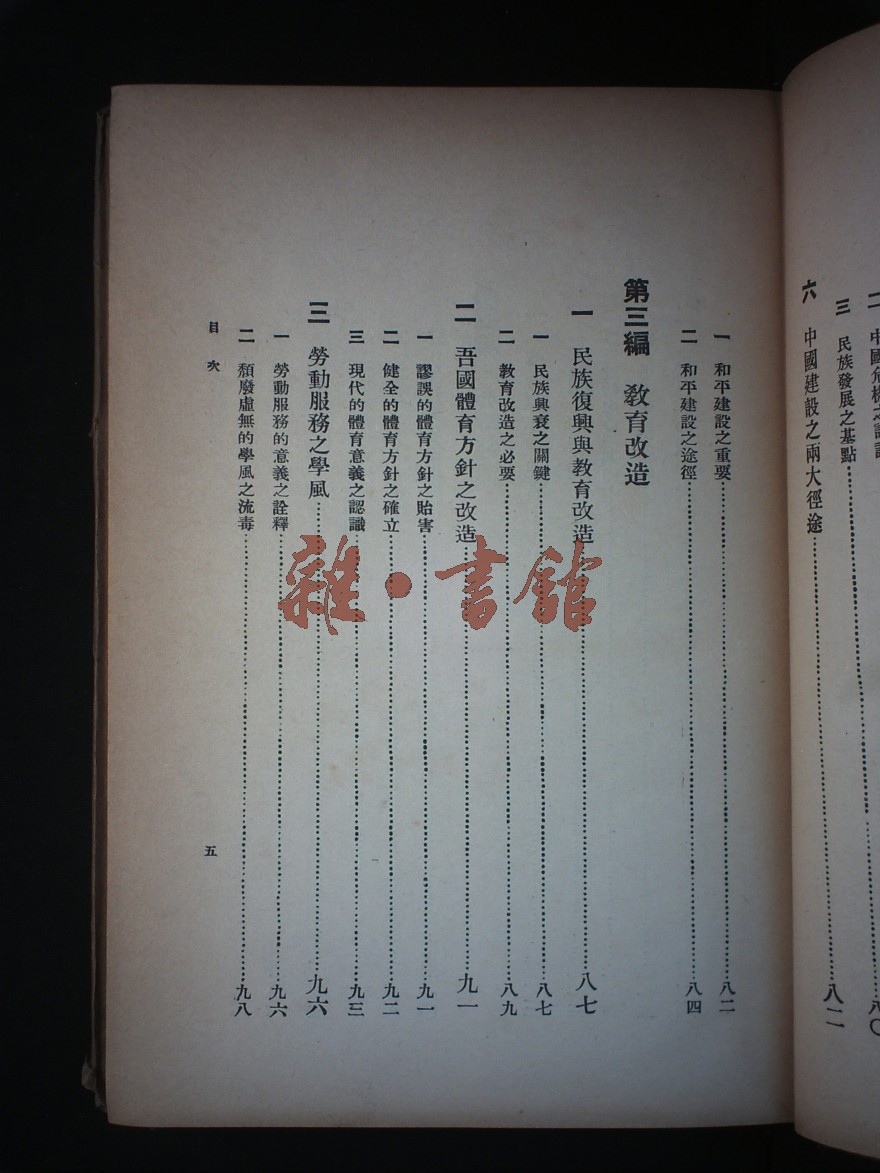 三 民族發展之基點
六 中國建設之兩大徑途……八二
一 和平建設之重要……八二
二 和平建設之途徑……八四
第三編 教育改造
一 民族復興與教育改造……八七
一 民族興衰之關鍵……八七
二 教育改造之必要……八九
二 吾國體育方針之改造……九一
一 謬誤的體育方針之貽害……九一
二 健全的體育方針之確立……九二
三 現代的體育意義之認識……九三
三 勞動服務之學風……九六
一 勞動服務的意義之詮釋……九六
二 頹廢虛無的學風之流毒……九八
目次
五
雜·書館